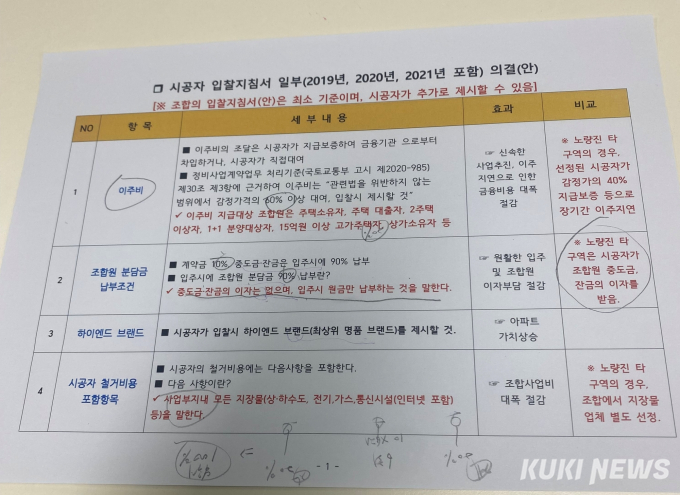 ❐ 시공자 입찰지침서 일부(2019년, 2020년, 2021년 포함) 의결(안)
[※ 조합의 입찰지침서(안)은 최소 기준이며, 시공자가 추가로 제시할 수 있음]
NO 항 목 세 부 내 용 효과 비교
1
이주비
■ 이주비의 조달은 시공자가 지급보증하여 금융기관 으로부터
차입하거나, 시공자가 직접대여
■ 정비사업계약업무 처리기준(국토교통부 고시 제2020-985)
제30조 제3항에 근거하여 이주비는 "관련법을 위반하지 않는
범위에서 감정가격의 60% 이상 대여, 입찰시 제시할 것"
✓ 이주비 지급대상 조합원은 주택소유자, 주택 대출자, 2주택
이상자, 1+1 분양대상자, 15억원 이상 고가주택자, 상가소유자 등
☞ 신속한
사업추진, 이주
지연으로 인한
금융비용 대폭
절감
※ 노량진 타
구역의 경우,
선정된 시공자가
감정가의 40%
지급보증 등으로
장기간 이주지연
2
조합원 분담금
납부조건
■ 계약금 10%, 중도금·잔금은 입주시에 90% 납부
■ 입주시에 조합원 분담금 90% 납부란?
✓ 중도금·잔금의 이자는 없으며, 입주시 원금만 납부하는 것을 말한다.
☞ 원활한 입주
및 조합원
이자부담 절감
※ 노량진 타
구역은 시공자가
조합원 중도금,
잔금의 이자를
받음.
3
하이엔드 브랜드
■ 시공자가 입찰시 하이엔드 브랜드(최상위 명품 브랜드)를 제시할 것.
☞ 아파트
가치상승
4
시공자 철거비용
포함항목
■ 시공자의 철거비용에는 다음사항을 포함한다.
■ 다음 사항이란?
✓ 사업부지내 모든 지장물(상·하수도, 전기,가스,통신시설(인터넷 포함)
등)을 말한다.
☞ 조합사업비
대폭 절감
※ 노량진 타
구역의 경우,
조합에서 지장물
업체 별도 선정.
- 1 -
KUKI NEWS